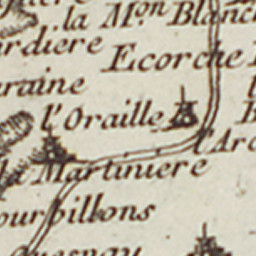 la M.on Blanc
rdiere
Ecorche
raine
l'Oraille
l'Arc
la Martiniere
ourbillons
uesnay